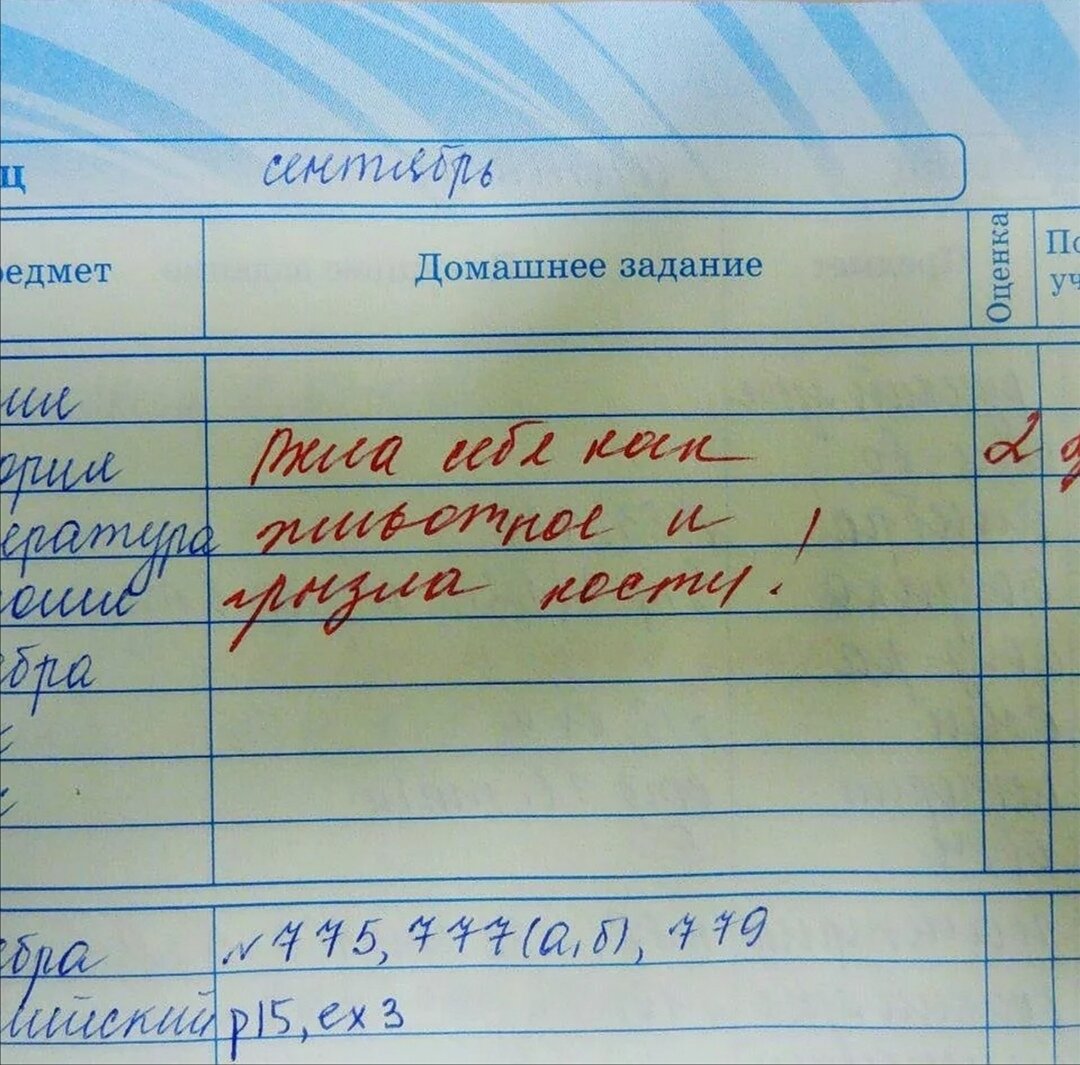 ц сентябрь
редмет Домашнее задание Оценка По
уч
ория Вела себя как 2
ература животное и
грызла кости!
ебра
ебра №775, 777(а,б), 779
лийский р15, ex 3